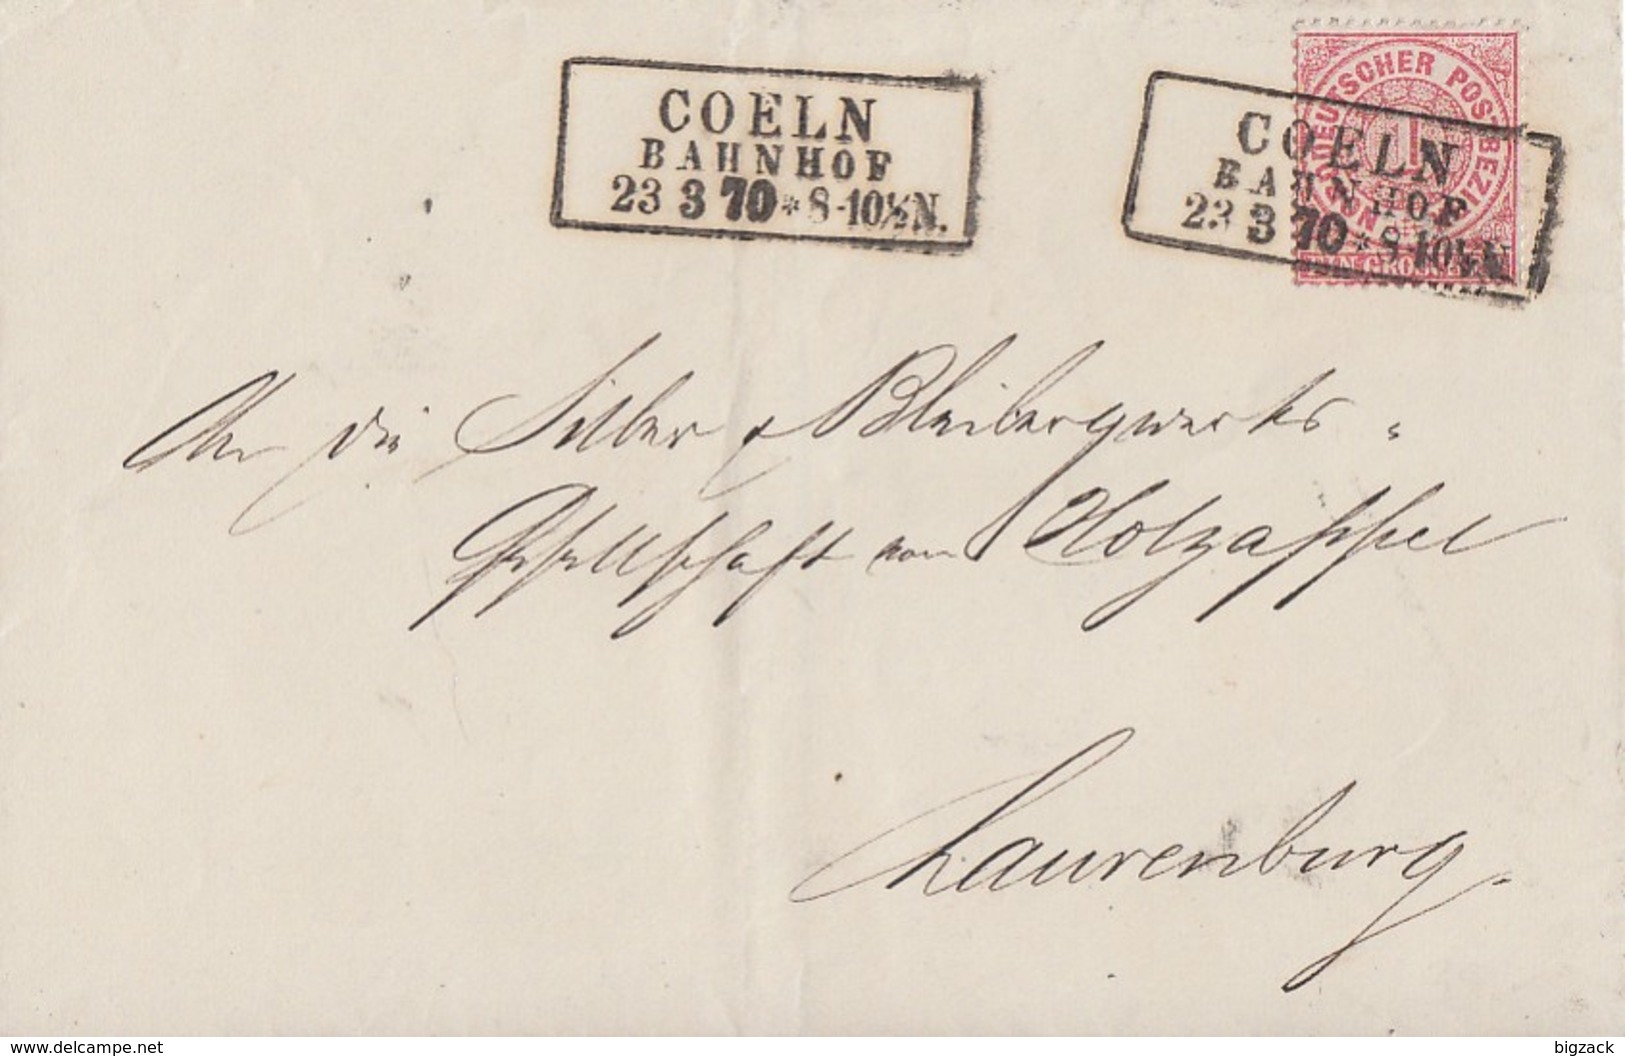 COELN
BAHNHOF
23 3 70 * 8-10½N.
COELN
BAHNHOF
23 3 70 * 8-10½N
NORDDEUTSCHER POSTBEZIRK
1
EIN GROSCHEN
An die Silber & Bleibergwerks-
Gesellschaft von Holzappel
Laurenburg.
www.delcampe.net
bigzack